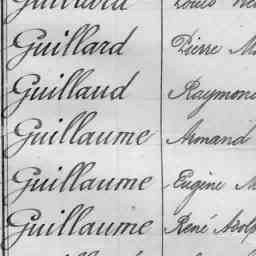 Guillard Pierre M
Guillaud Raymond
Guillaume Armand
Guillaume Eugène M
Guillaume René Adolp